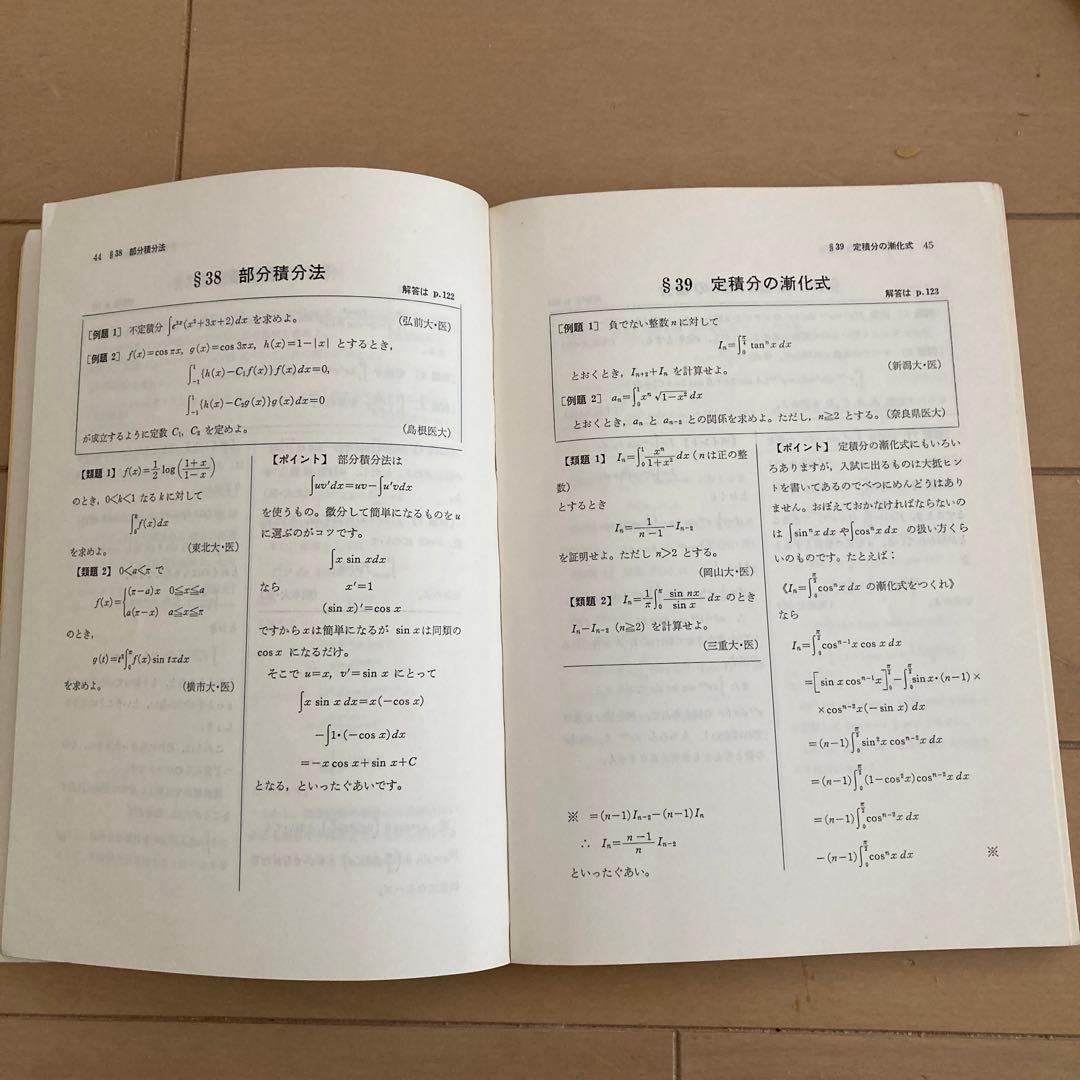 44 §38 部分積分法
§38 部分積分法
解答は p.122
[例題 1] 不定積分 ∫e^{2x}(x²+3x+2)dx を求めよ。 (弘前大・医)
[例題 2] f(x)=cos πx, g(x)=cos 3πx, h(x)=1-|x| とするとき,
∫_{-1}^{1}{h(x)-C₁f(x)}f(x)dx=0,
∫_{-1}^{1}{h(x)-C₂g(x)}g(x)dx=0
が成立するように定数 C₁, C₂ を定めよ。 (島根医大)
【類題 1】 f(x)=1/2 log((1+x)/(1-x))
のとき, 0<k<1 なる k に対して
∫_0^k f(x)dx
を求めよ。 (東北大・医)
【類題 2】 0<a<π で
f(x)={(π-a)x 0≦x≦a
a(π-x) a≦x≦π
のとき,
g(t)=t²∫_0^π f(x)sin txdx
を求めよ。 (横市大・医)
【ポイント】 部分積分法は
∫uv'dx=uv-∫u'vdx
を使うもの。微分して簡単になるものをu
に選ぶのがコツです。
∫x sin xdx
なら x'=1
(sin x)'=cos x
ですからxは簡単になるが sin xは同類の
cos x になるだけ。
そこで u=x, v'=sin x にとって
∫x sin x dx=x(-cos x)
-∫1・(-cos x)dx
=-x cos x+sin x+C
となる, といったぐあいです。
§39 定積分の漸化式 45
§39 定積分の漸化式
解答は p.123
[例題 1] 負でない整数 n に対して
I_n=∫_0^{π/4} tan^n x dx
とおくとき, I_{n+2}+I_n を計算せよ。 (新潟大・医)
[例題 2] a_n=∫_0^1 x^n √(1-x²) dx
とおくとき, a_n と a_{n-2} との関係を求めよ。ただし, n≧2 とする。(奈良県医大)
【類題 1】 I_n=∫_0^1 x^n/(1+x²) dx (n は正の整
数)
とするとき
I_n=1/(n-1)-I_{n-2}
を証明せよ。ただし n>2 とする。
(岡山大・医)
【類題 2】 I_n=1/π∫_0^π sin nx/sin x dx のとき
I_n-I_{n-2} (n≧2) を計算せよ。
(三重大・医)
【ポイント】 定積分の漸化式にもいろい
ろありますが, 入試に出るものは大抵ヒン
トを書いてあるのでべつにめんどうはあり
ません。おぼえておかなければならないの
は ∫sin^n x dx や∫cos^n x dx の扱い方くら
いのものです。たとえば;
《I_n=∫_0^{π/2} cos^n x dx の漸化式をつくれ》
なら
I_n=∫_0^{π/2} cos^{n-1} x cos x dx
=[sin x cos^{n-1} x]_0^{π/2}-∫_0^{π/2} sin x・(n-1)×
×cos^{n-2} x(-sin x) dx
=(n-1)∫_0^{π/2} sin²x cos^{n-2} x dx
=(n-1)∫_0^{π/2}(1-cos²x)cos^{n-2} x dx
=(n-1)∫_0^{π/2} cos^{n-2} x dx
-(n-1)∫_0^{π/2} cos^n x dx ※
※ =(n-1)I_{n-2}-(n-1)I_n
∴ I_n=(n-1)/n I_{n-2}
といったぐあい。